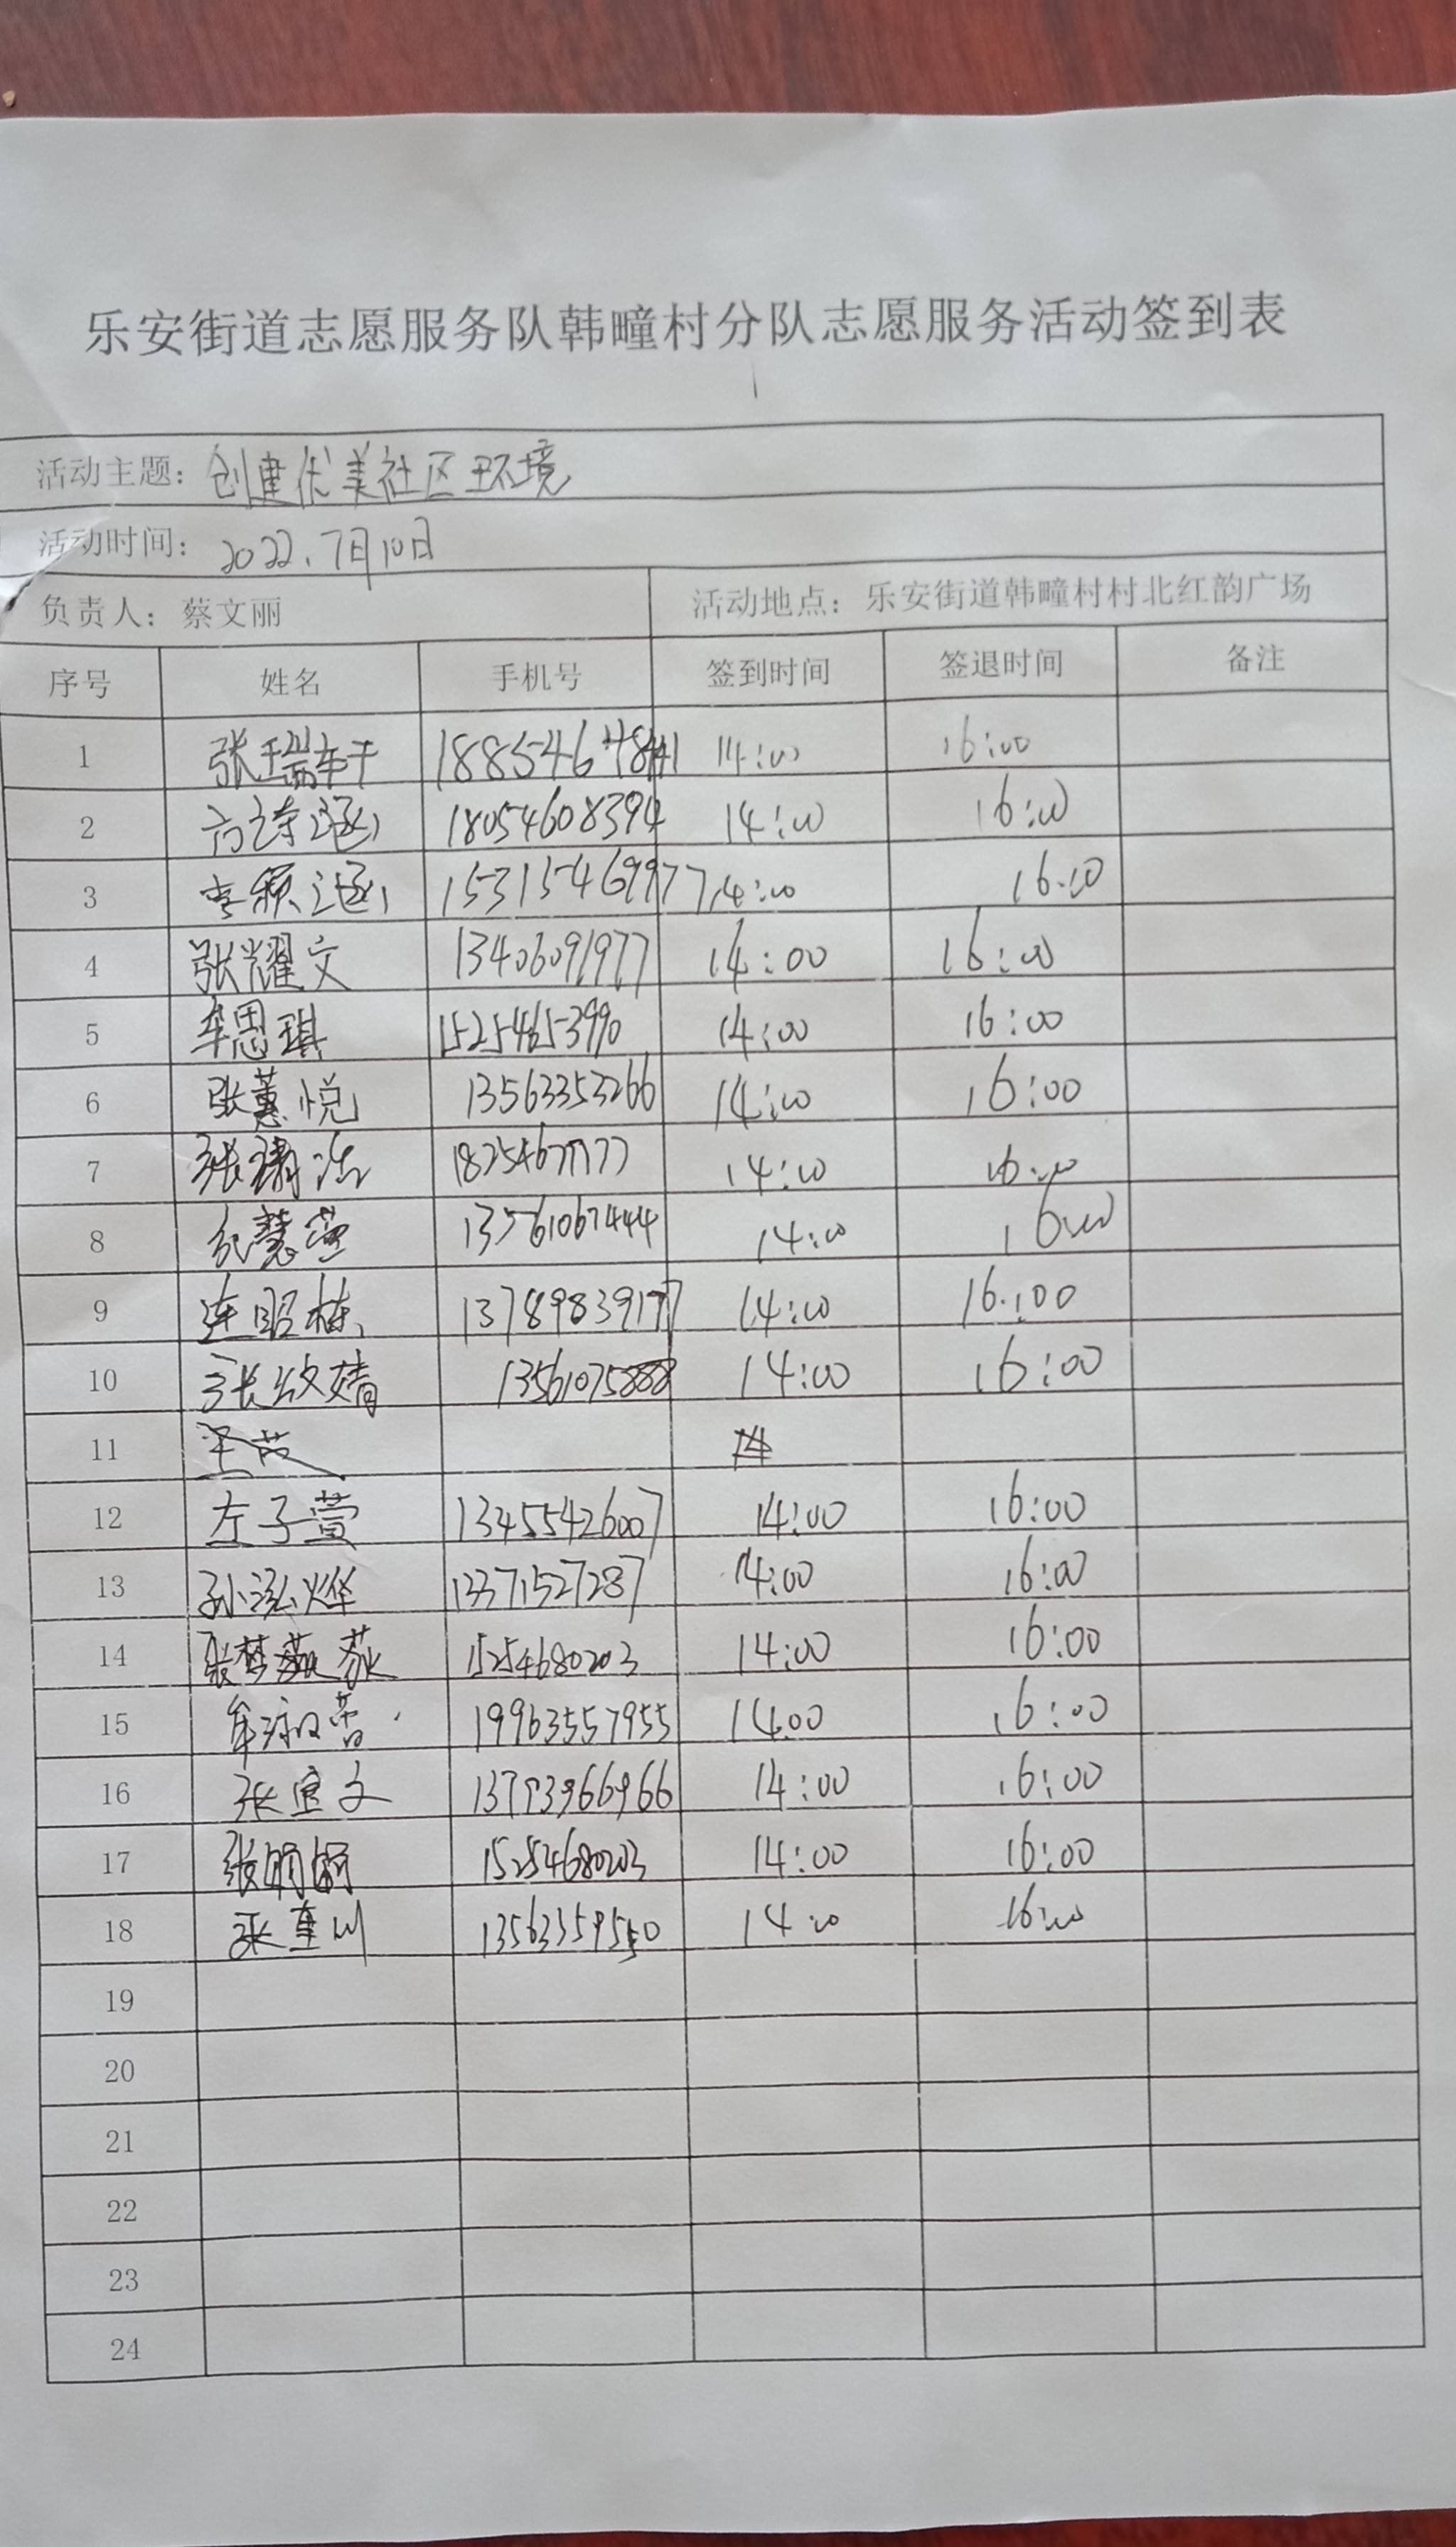 乐安街道志愿服务队韩疃村分队志愿服务活动签到表
活动主题: 创建优美社区环境
活动时间: 2022.7月10日
负责人: 蔡文丽 活动地点: 乐安街道韩疃村村北红韵广场
序号 姓名 手机号 签到时间 签退时间 备注
1 张瑞轩 14:00 16:00
2 18054608394 14:00 16:00
3 15315469977 14:00 16:00
4 张耀文 13406091977 14:00 16:00
5 牟思琪 15254653990 14:00 16:00
6 张蕙悦 13563353266 14:00 16:00
7 张 14:00 16:00
8 纪慧莹 13561067444 14:00 16:00
9 连昭栋 13789839177 14:00 16:00
10 张玫婧 13561075888 14:00 16:00
11
12 左子萱 13455426007 14:00 16:00
13 孙泓烨 13371527287 14:00 16:00
14 张梦 15254680203 14:00 16:00
15 牟 19963557955 14:00 16:00
16 张宜文 14:00 16:00
17 张 15254680203 14:00 16:00
18 张 14:00 16:00
19
20
21
22
23
24